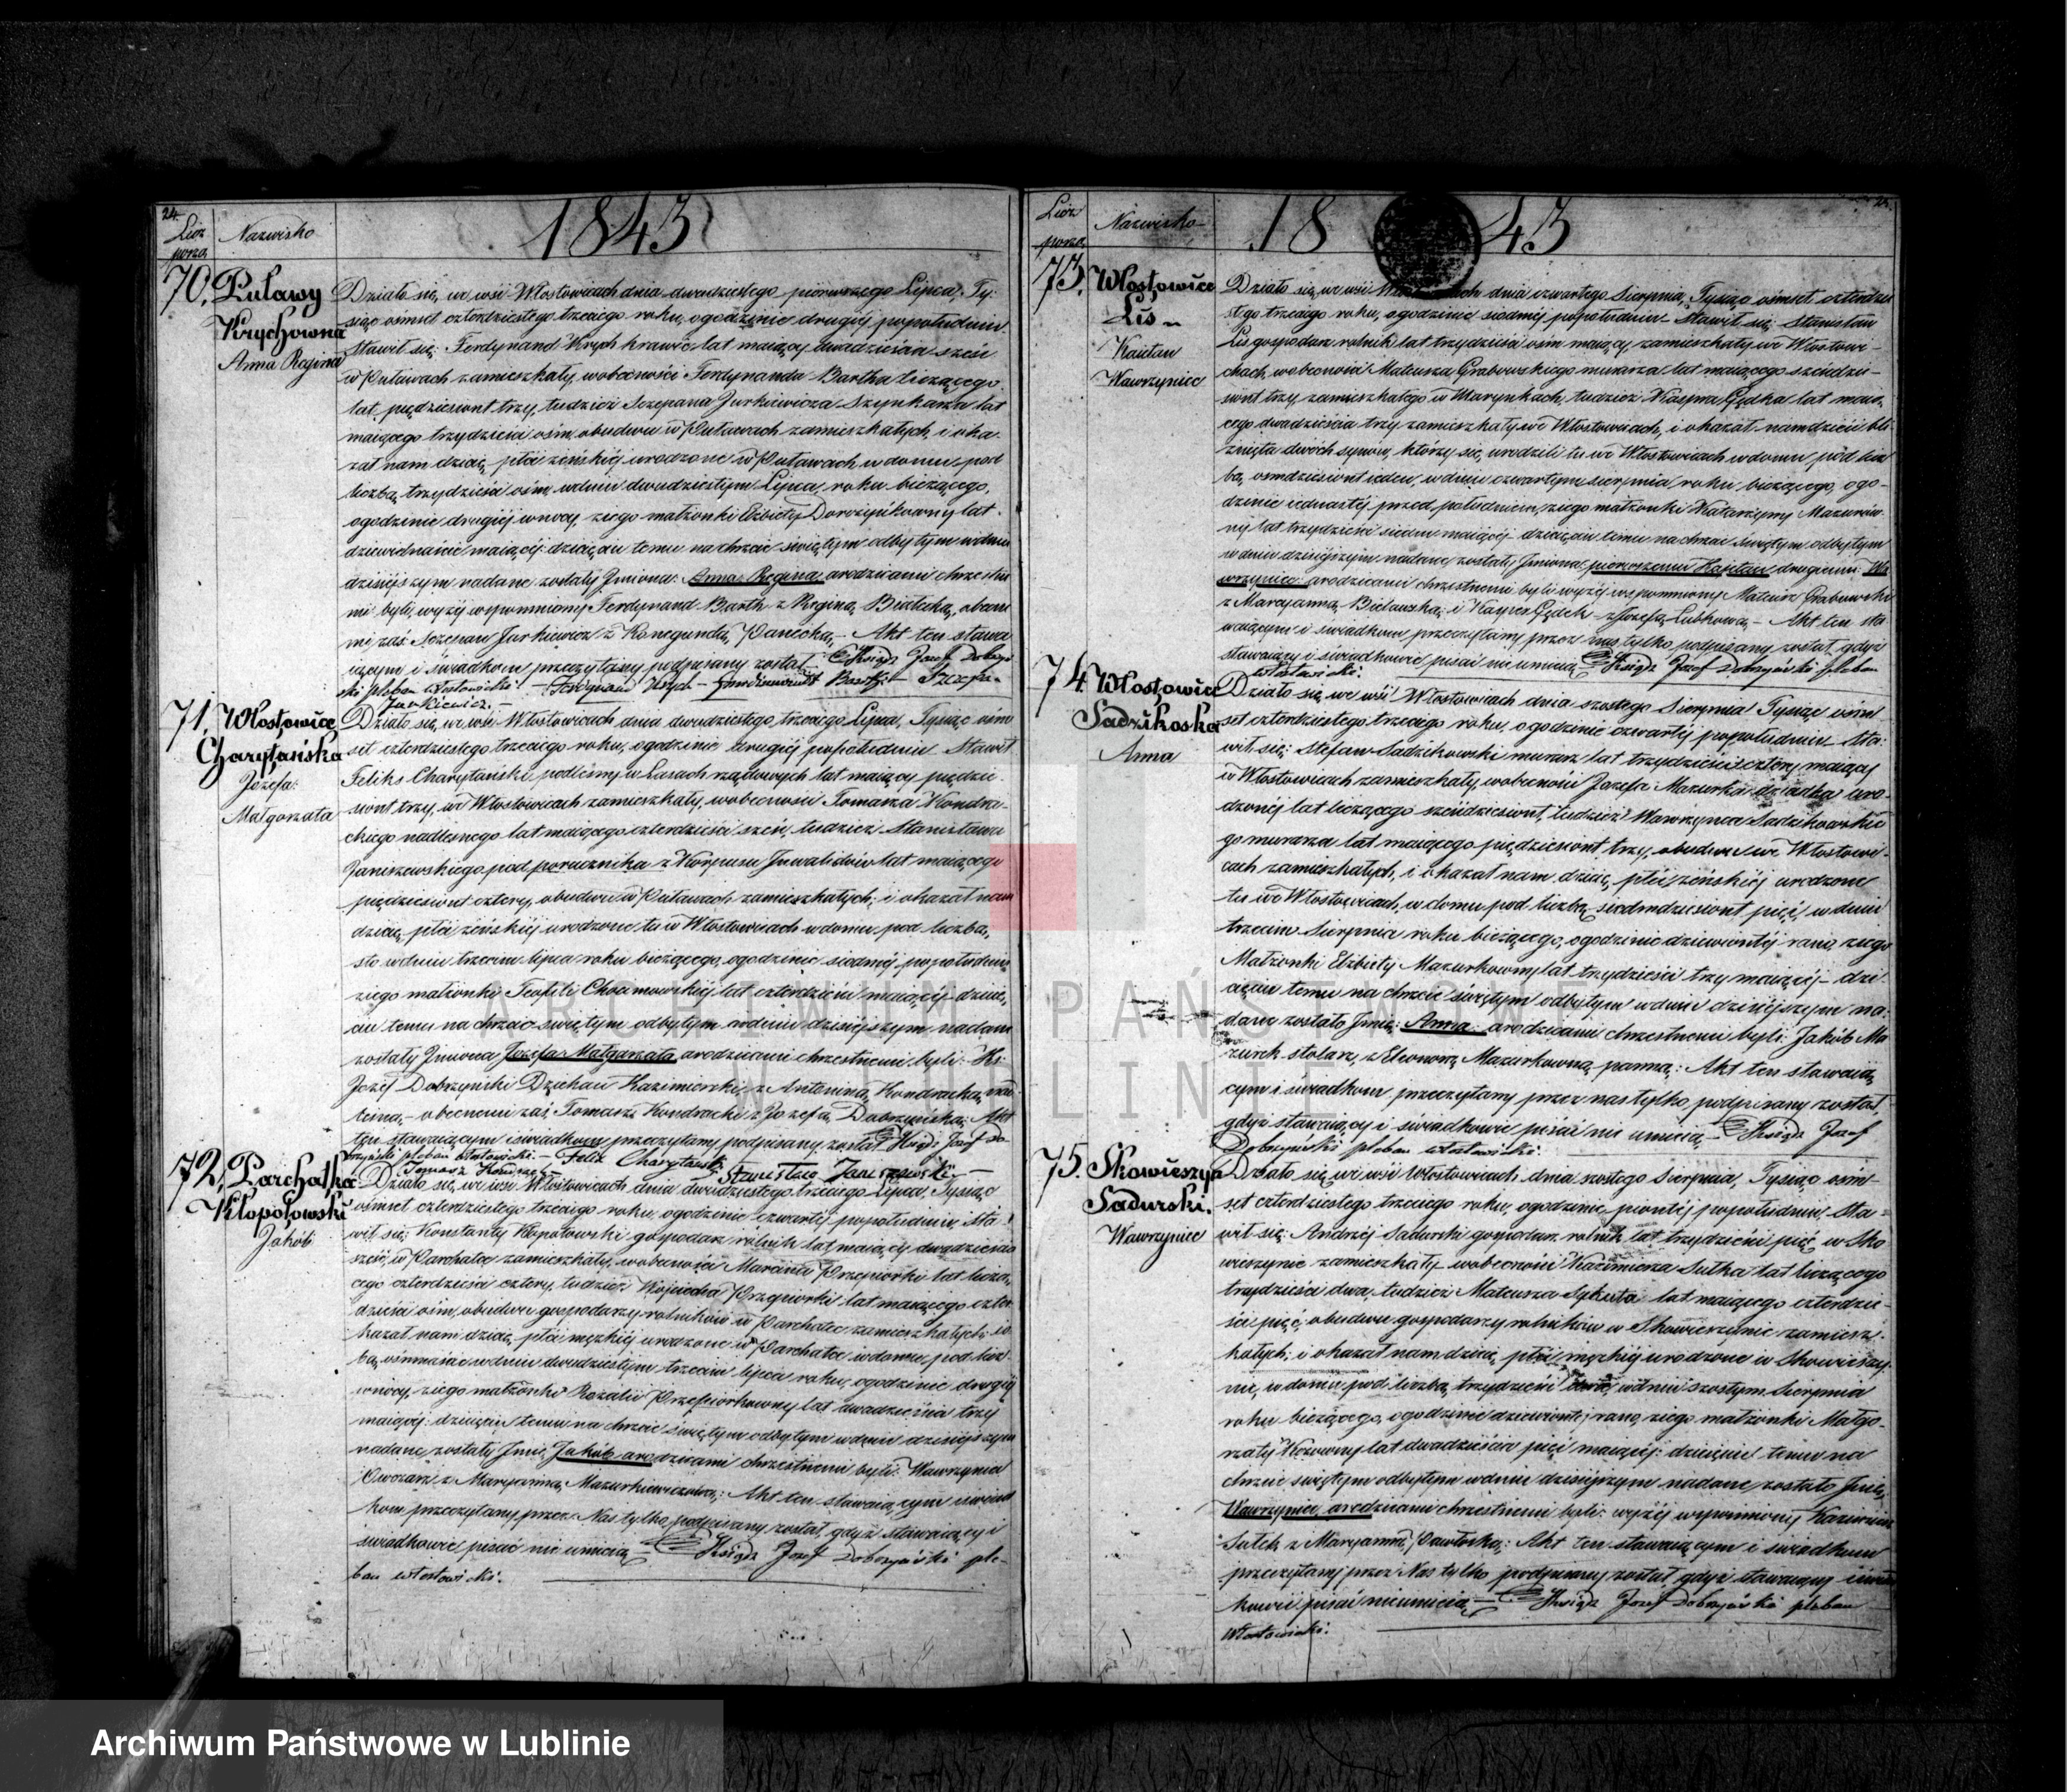 24.
Licz porzą.
Nazwisko
1843
70. Puławy
Krychowna
Anna Regina
Działo się, we wsi Włostowicach dnia dwudziestego pierwszego Lipca, Ty-
siąc ośmset czterdziestego trzeciego roku, ogodzinie drugiéj popołudniu
Stawił się: Ferdynand Krych krawiec lat maiący dwadzieścia sześć
w Puławach zamieszkały, wobecności Ferdynanda Bartha liczącego
lat pięćdziesiont trzy, tudzież Sczepana Jurkiewicza Szynkarza lat
maiącego trzydzieści ośm, obudwu w Puławach zamieszkałych, i oka-
zał nam dziecię płci żeńskiéj urodzone w Puławach w domu pod
liczbą trzydzieści ośm wdniu dwudziestym Lipca, roku bieżącego,
ogodzinie drugiéj wnocy, ziego małżonki Elżbiety Dorczyńkowny lat
dziewiętnaście maiącéj: dziecięciu temu na chrzcie świętym odbytym wdniu
dzisiéjszym nadane zostały Jmiona: Anna Regina, arodzicami chrzestne-
mi byli, wyżéj wspomniony Ferdynand Barth z Reginą Białecką, obecne-
mi zaś Sczepan Jurkiewicz z Konegundą Panecką,- Akt ten stawa-
iącym i świadkom przeczytany podpisany został. Ksiądz Jozef Dobrzyń-
ski pleban włostowicki. - Ferdynand Krych - Ferdinandt Barth - Sczepan
Jurkiewicz. -
71. Włostowice
Charytańska
Józefa
Małgorzata
Działo się, we wsi Włostowicach dnia dwudziestego trzeciego Lipca, Tysiąc ośm-
set czterdziestego trzeciego roku, ogodzinie drugiéj popołudniu Stawił
Feliks Charytański podleśny w Lasach rządowych lat maiący pięćdzie-
siont trzy, we Włostowicach zamieszkały, wobecności Tomasza Kondra-
ckiego nadleśnego lat maiącego czterdzieści sześć, tudzież Stanisława
Janiszewskiego pod porucznika z Korpusu Jnwalidów lat maiącego
pięćdziesiont cztery, obudwu w Puławach zamieszkałych; i okazał nam
dziecię płci żeńskiéj urodzone tu w Włostowicach w domu pod liczbą
sto wdniu trzecim lipca roku bieżącego, ogodzinie siodméj popołudniu
ziego małżonki Teofili Chocimowskiéj lat czterdzieści maiącéj- dziecię-
ciu temu na chrzcie świętym odbytym wdniu dzisiéjszym nadane
zostały Jmiona Jozefa Małgorzata, arodzicami chrzestnemi byli: Ks:
Jozef Dobrzyński Dziekan Kazimierski, z Antoniną Kondracką
- obecnemi zaś Tomasz Kondracki z Jozefą Dobrzyńską: Akt
ten stawaiącym i świadkom przeczytany podpisany został Ksiądz Jozef Do-
brzyński pleban włostowicki. - Felix Charytański
Tomasz Kondracki - Stanisław Janiszewski -
72. Parchatka
Kłopotowski
Jakób
Działo się, we wsi Włostowicach dnia dwudziestego trzeciego Lipca, Tysiąc
ośmset czterdziestego trzeciego roku, ogodzinie czwartéj popołudniu, Sta-
wił się: Konstanty Kłopotowski gospodarz rólnik lat maiący dwadzieścia
sześć, w Parchatce zamieszkały, wobecności Marcina Przepiorki lat liczą-
cego czterdzieści cztery, tudzież Woyciecha Przepiorki lat maiącego czter-
dzieści ośm, obudwu gospodarzy rolników w Parchatce zamieszkałych; i o-
kazał nam dziecię płci męzkiéj urodzone w Parchatce w domu, pod licz-
bą ośmnaście wdniu dwudziestym trzecim lipca roku, ogodzinie drugiéj
wnocy, ziego małżonki Rozalii Przepiorkowny lat dwadzieścia trzy
maiącéj: dziecięciu temu na chrzcie świętym odbytym wdniu dzisiéjszym
nadane zostały Jmie, Jakób arodzicami chrzestnemi byli: Wawrzyniec
Owczarz z Maryanną Mazurkiewiczową: Akt ten stawaiącym iświad-
kom przeczytany przez Nas tylko podpisany został, gdyż stawaiący i
świadkowie pisać nie umieią. Ksiądz Jozef Dobrzyński ple-
ban włostowicki.
Licz porzą.
Nazwisko
1843
73. Włostowice
Lis -
Kaietan
Wawrzyniec
Działo się, we wsi Włostowicach dnia czwartego Sierpnia, Tysiąc ośmset czterdzie-
stego trzeciego roku, ogodzinie siodméj popołudniu- Stawił się: Stanisław
Lis gospodarz rolnik lat trzydzieści ośm maiący, zamieszkały we Włostowi-
cach, wobecności Mateusza Grabowskiego murarza lat maiącego sześćdzie-
siont trzy zamieszkałego w Marynkach, tudzież Kaspra Gędka lat maią-
cego dwadzieścia trzy zamieszkały we Włostowicach, i okazał nam dzieci bli-
źnięta dwóch synów, którzy się urodzili tu we Włostowicach w domu pod licz-
bą ośmdziesiont ieden, w dniu czwartym sierpnia roku bieżącego, ogo-
dzinie iedenastéj przed południem, ziego małżonki Katarzyny Mazurów-
ny lat trzydzieści siedem maiącéj dziecięciu temu na chrzcie świętym odbytym
w dniu dzisiéjszym nadane zostały Jmiona: pierwszemu Kajetan drugiemu: Wa-
wrzyniec arodzicami chrzestnemi byli wyżéj wspomniony Mateusz Grabowski
z Maryanną Bielawską i Kasper Gędek z Jozefą Lubkową - Akt ten sta-
waiącym i świadkom przeczytany przez nas tylko podpisany został, gdyż
stawaiący i świadkowie pisać nie umieią. Ksiądz Jozef Dobrzyński pleban
włostowicki.
74. Włostowice
Sadzikoska
Anna
Działo się, we wsi Włostowicach dnia szostego Sierpnia Tysiąc ośm-
set czterdziestego trzeciego roku, ogodzinie czwartéj popołudniu- Sta-
wił się: Stefan Sadzikowski murarz lat trzydzieści cztery maiący
w Włostowicach zamieszkały, wobecności Jozefa Mazurka dziadka uro-
dzonéj lat liczącego sześćdziesiont, tudzież Wawrzynca Sadzikowskie-
go murarza lat maiącego pięćdziesiont trzy, obudwu we Włostowi-
cach zamieszkałych, i okazał nam dziecię płci żeńskiéj urodzone
tu we Włostowicach, w domu pod liczbą siedmdziesiont pięć w dniu
trzecim Sierpnia roku bieżącego, ogodzinie dziewiontéj rano, ziego
Małżonki Elżbiety Mazurkowny lat trzydzieści trzy maiącéj- dzie-
cięciu temu na chrzcie świętym odbytym wdniu dzisiéjszym na-
dane zostało Jmie: Anna arodzicami chrzestnemi byli: Jakób Ma-
zurek stolarz, z Eleonorą Mazurkowną panną: Akt ten stawaią-
cym i świadkom przeczytany przez nas tylko podpisany został,
gdyż stawaiący i świadkowie pisać nie umieią,- Ksiądz Jozef
Dobrzyński pleban włostowicki.
75. Skowieszyn
Sadurski.
Wawrzyniec
Działo się, we wsi Włostowicach, dnia szostego Sierpnia, Tysiąc ośm-
set czterdziestego trzeciego roku, ogodzinie piontéj popołudniu, Sta-
wił się: Andrzéj Sadurski gospodarz rolnik lat trzydzieści pięć w Sko-
wieszynie zamieszkały, wobecności Kazimierza Sułka lat liczącego
trzydzieści dwa, tudzież Mateusza Sykuta lat maiącego czterdzie-
ści pięć, obudwu gospodarzy rolników w Skowieszynie zamiesz-
kałych; i okazał nam dziecię płci męzkiéj urodzone w Skowieszy-
nie, w domu pod liczbą trzydzieści wdniu szostym Sierpnia
roku bieżącego, ogodzinie dziewiontéj rano, ziego małżonki Małgo-
rzaty Kozowny lat dwadzieścia pięć maiącéj: dziecięciu temu na
chrzcie świętym odbytym wdniu dzisiéjszym nadane zostało Jmie
Wawrzyniec, arodzicami chrzestnemi byli: wyżéj wspomniony Kazimierz
Sułek z Maryanną Pawłoską: Akt ten stawaiącym i świadkom
przeczytany przez Nas tylko podpisany został, gdyż stawaiący iświad-
kowie pisać nieumieią,- Ksiądz Jozef Dobrzyński pleban
Włostowicki.
ARCHIWUM PAŃSTWOWE
W LUBLINIE
Archiwum Państwowe w Lublinie